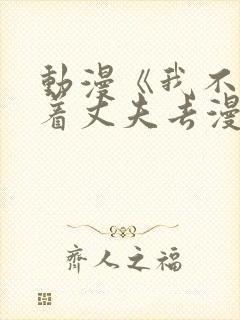 動漫《我不
着丈夫去漫
齊人之福